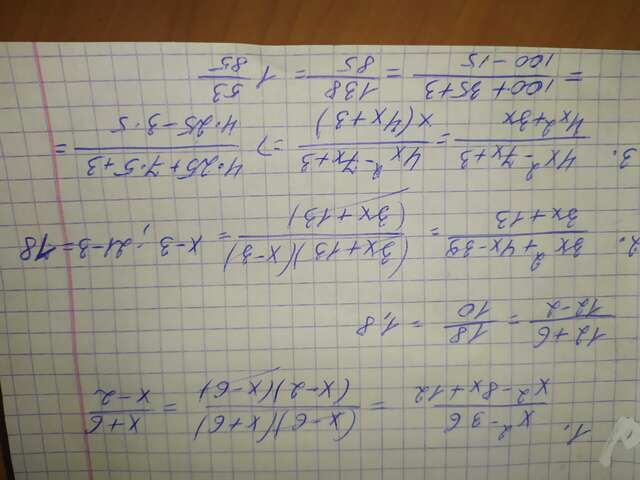 1. x²-36/x²-8x+12 = (x-6)(x+6)/(x-2)(x-6) = x+6/x-2
12+6/12-2 = 18/10 = 1,8
2. 3x²+4x-39/3x+13 = (3x+13)(x-3)/(3x+13) = x-3; 21-3=18
3. 4x²-7x+3/4x²+3x = 4x²-7x+3/x(4x+3) => 4·25+7·5+3/4·25-3·5 =
= 100+35+3/100-15 = 138/85 = 1 53/85